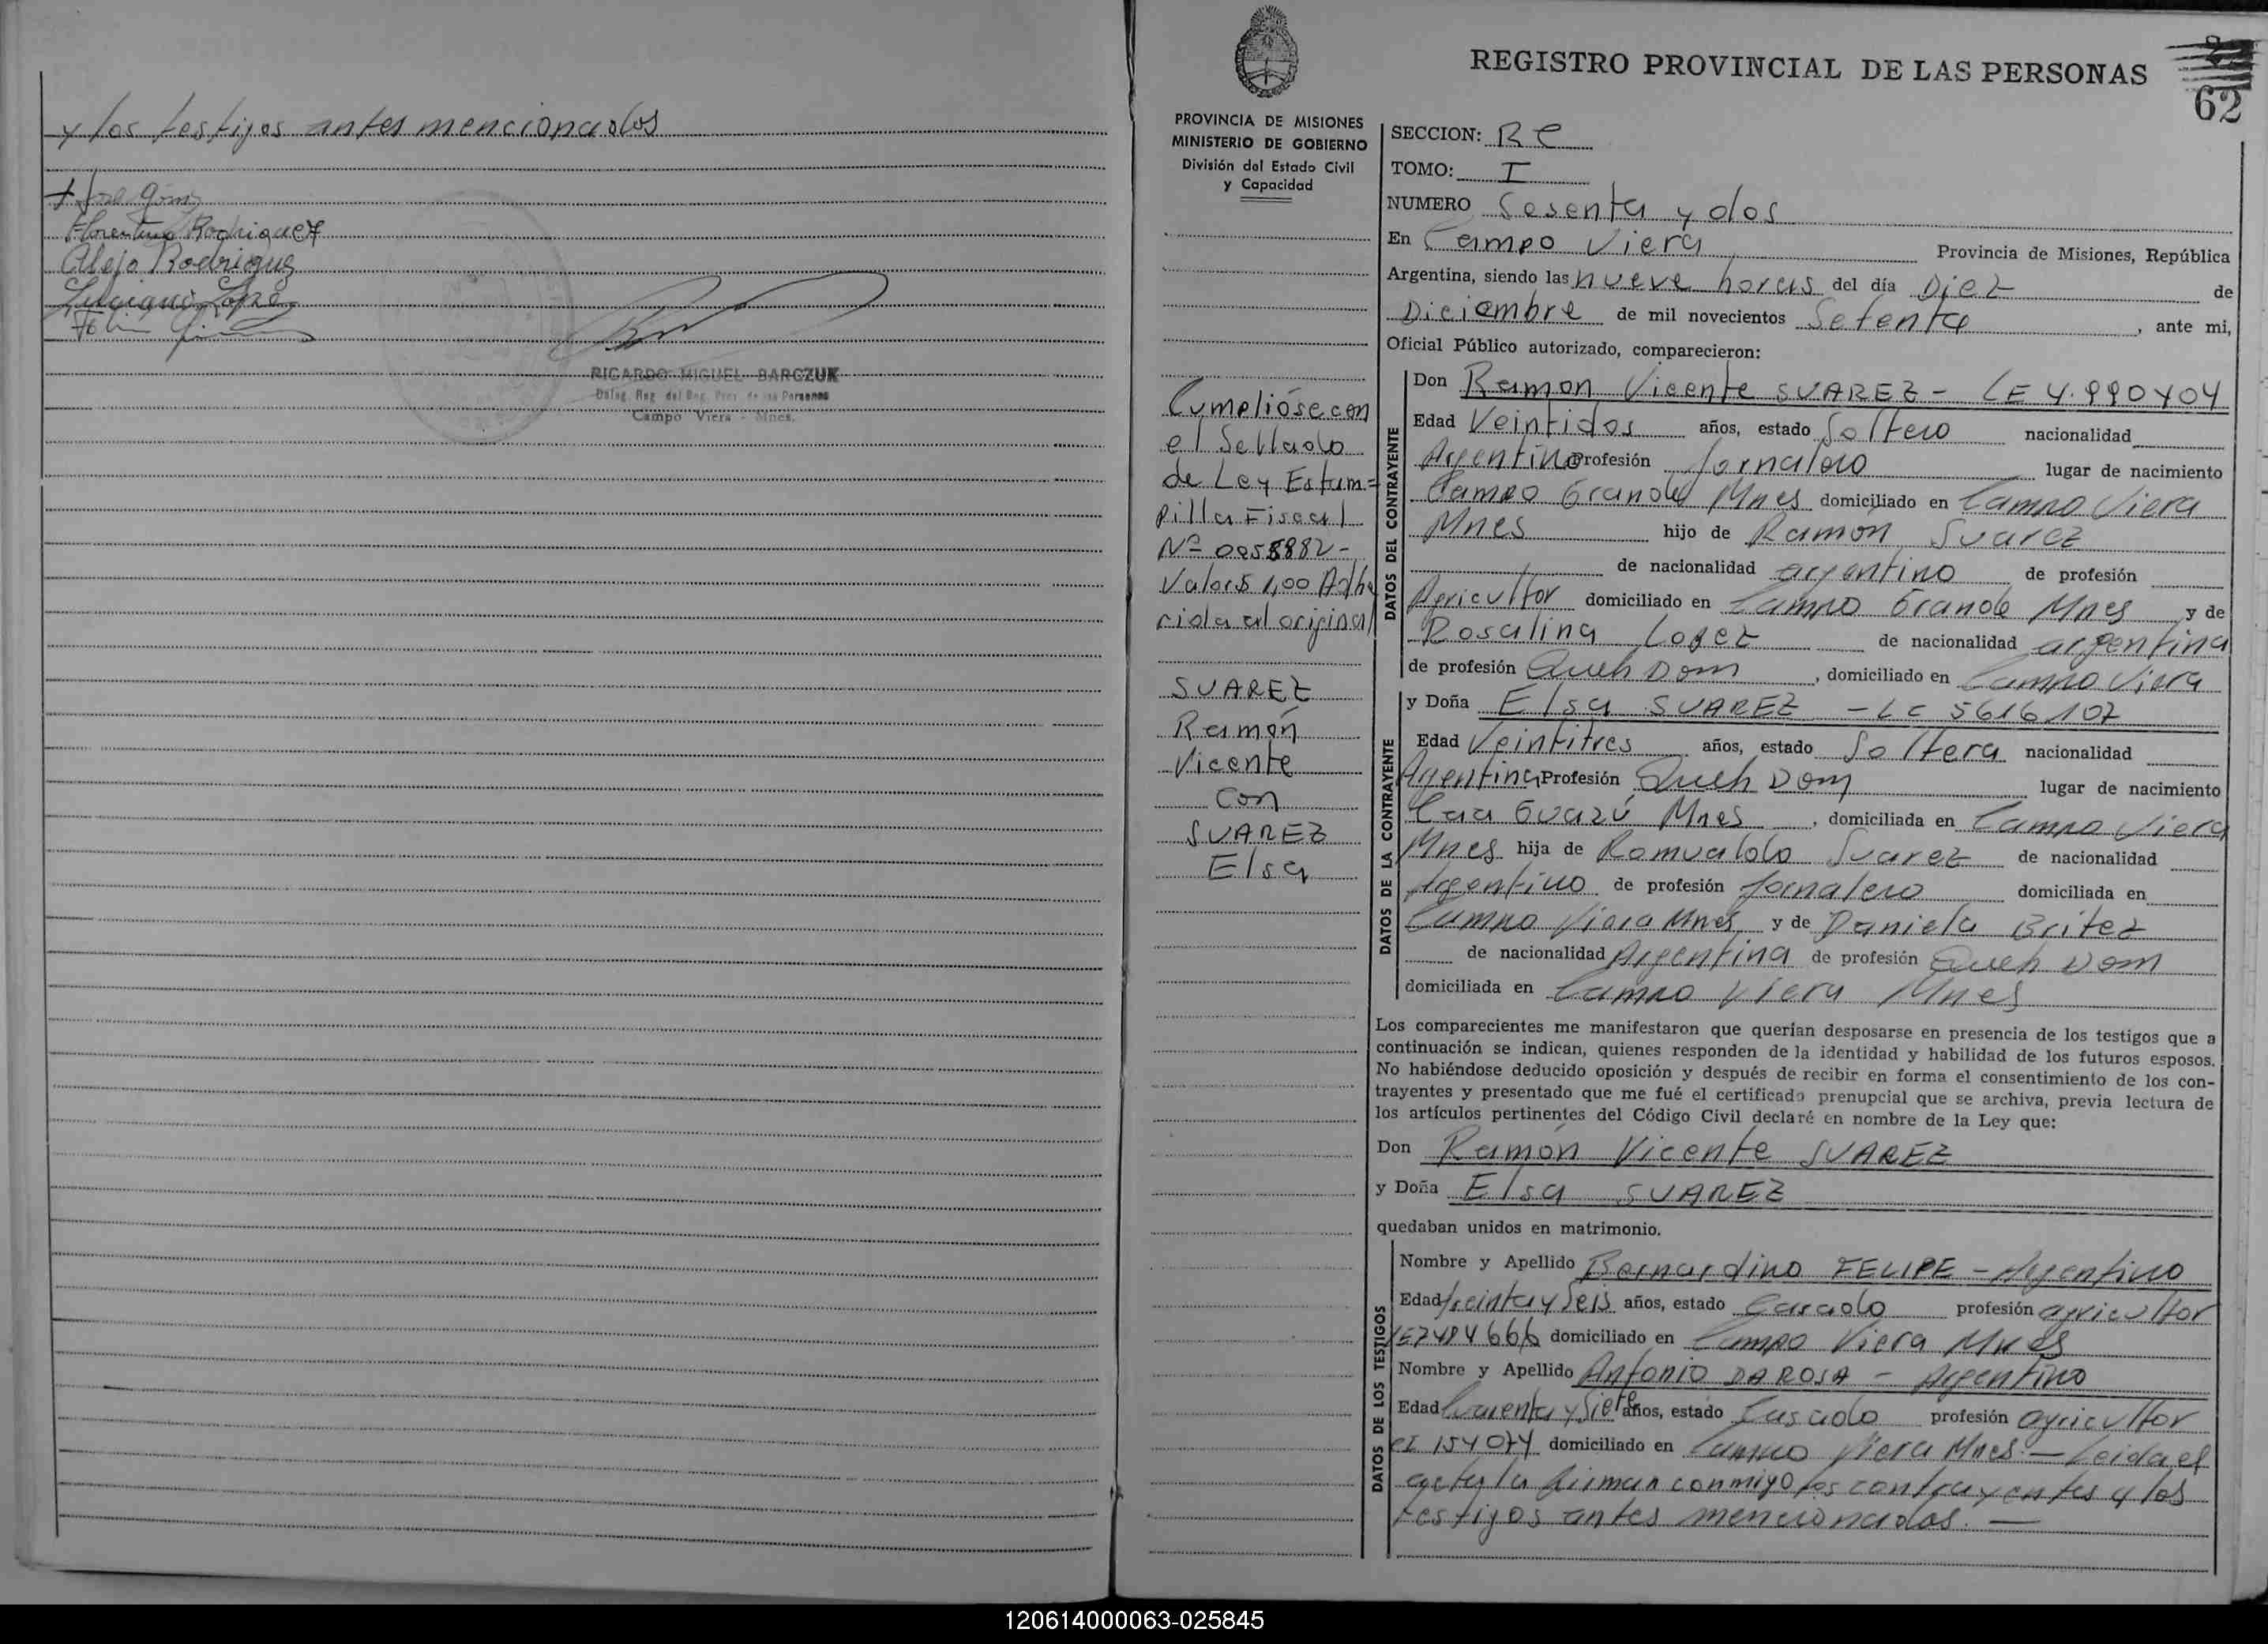 y los testigos antes mencionados
Florentino Rodriguez
Alejo Rodriguez
Luciano Lopez
RICARDO MIGUEL BARCZUK
Campo Viera - Mnes.
REGISTRO PROVINCIAL DE LAS PERSONAS
62
PROVINCIA DE MISIONES
MINISTERIO DE GOBIERNO
División del Estado Civil
y Capacidad
Cumplióse con
el Sellado
de Ley Estam=
pilla Fiscal
Nº
Valor $ 1,00 Adhe
rida al original
SUAREZ
Ramón
Vicente
con
SUAREZ
Elsa
SECCION: RC
TOMO: I
NUMERO Sesenta y dos
En Campo Viera Provincia de Misiones, República
Argentina, siendo las nueve horas del día Diez de
Diciembre de mil novecientos Setenta, ante mi,
Oficial Público autorizado, comparecieron:
DATOS DEL CONTRAYENTE
Don Ramon Vicente SUAREZ - LE 4.990404
Edad Veintidos años, estado Soltero nacionalidad
Argentino Profesión Jornalero lugar de nacimiento
Campo Grande Mnes domiciliado en Campo Viera
Mnes hijo de Ramón Suarez
de nacionalidad argentino de profesión
Agricultor domiciliado en Campo Grande Mnes y de
Rosalina Lopez de nacionalidad argentina
de profesión Queh Dom, domiciliado en Campo Viera
DATOS DE LA CONTRAYENTE
y Doña Elsa SUAREZ - LC 5616107
Edad Veintitres años, estado Soltera nacionalidad
Argentina Profesión Queh Dom lugar de nacimiento
Caa Guazú Mnes, domiciliada en Campo Viera
Mnes hija de Romualdo Suarez de nacionalidad
Argentino de profesión Jornalero domiciliada en
Campo Viera Mnes y de Daniela Britez
de nacionalidad Argentina de profesión Queh Dom
domiciliada en Campo Viera Mnes
Los comparecientes me manifestaron que querían desposarse en presencia de los testigos que a
continuación se indican, quienes responden de la identidad y habilidad de los futuros esposos.
No habiéndose deducido oposición y después de recibir en forma el consentimiento de los con-
trayentes y presentado que me fué el certificado prenupcial que se archiva, previa lectura de
los artículos pertinentes del Código Civil declaré en nombre de la Ley que:
Don Ramón Vicente SUAREZ
y Doña Elsa SUAREZ
quedaban unidos en matrimonio.
DATOS DE LOS TESTIGOS
Nombre y Apellido Bernardino FELIPE - Argentino
Edad treinta y Seis años, estado Casado profesión agricultor
LE 7484666 domiciliado en Campo Viera Mnes
Nombre y Apellido Antonio DA ROSA - Argentino
Edad Cuarenta y Siete años, estado Casado profesión agricultor
CI 154074 domiciliado en Campo Viera Mnes. - Leida el
acta la firman conmigo los contrayentes y los
testigos antes mencionados. -
120614000063-025845